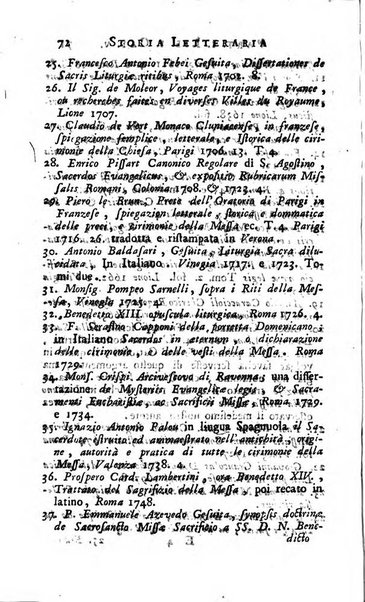 72 STORIA LETTERARIA
25. Francesco Antonio Febei Gesuita, Dissertationes de
Sacris Liturgiæ ritibus, Roma 1701. 8.
26. Il Sig. de Moleor, Voyages liturgique de France,
ou recherches faites en diverses Villes du Royaume,
Lione 1707.
27. Claudio de Vert Monaco Cluniacense, in franzese,
spiegazione semplice, letterale, e Istorica delle ciri-
monie della Chiesa, Parigi 1706. 13. T. 4.
28. Enrico Pissart Canonico Regolare di S. Agostino
Sacerdos Evangelicus, & expositio Rubricarum Mis-
salis Romani, Colonia 1708. & 1723. 4.
29. Piero le Brun Prete dell'Oratorio di Parigi in
Franzese, spiegazion letterale, storica e dommatica
delle preci, e cirimonie della Messa ec. T. 4. Parigi
1716. 26. tradotta e ristampata in Verona.
30. Antonio Baldasari, Gesuita, Liturgia Sacra dilu-
cidata, In Italiano. Vinegia 1717. e 1723. To-
mi due.
31. Monsig. Pompeo Sarnelli, sopra i Riti della Mes-
sa, Venezia 1725.
32. Benedetto XIII. opuscula liturgica, Roma 1726. 4.
33. F. Serafino Capponi della porretta Domenicano
in Italiano Sacerdos in æternum, o dichiarazione
delle cirimonie, e delle vesti della Messa. Roma
1729.
34. Mons. Crispi, Arcivescovo di Ravenna, una disser-
tazione de Mysteriis Evangelicæ legis, & Sacra-
menti Eucharistiæ, ac Sacrificii Missæ, Roma 1729.
e 1734.
35. Ignazio Antonio Palou in lingua Spagnuola il Sa-
cerdote istruito ed ammaestrato nell'antichità, origi-
ne, autorità e pratica di tutte le cirimonie della
Messa, Valenza 1738. 4.
36. Prospero Card. Lambertini, ora Benedetto XIV.
Trattato del Sagrifizio della Messa, poi recato in
latino, Roma 1748.
37. P. Emmanuele Azevedo Gesuita, synopsis doctrinæ
de Sacrosancto Missæ Sacrificio a SS. D. N. Bene-
dicto